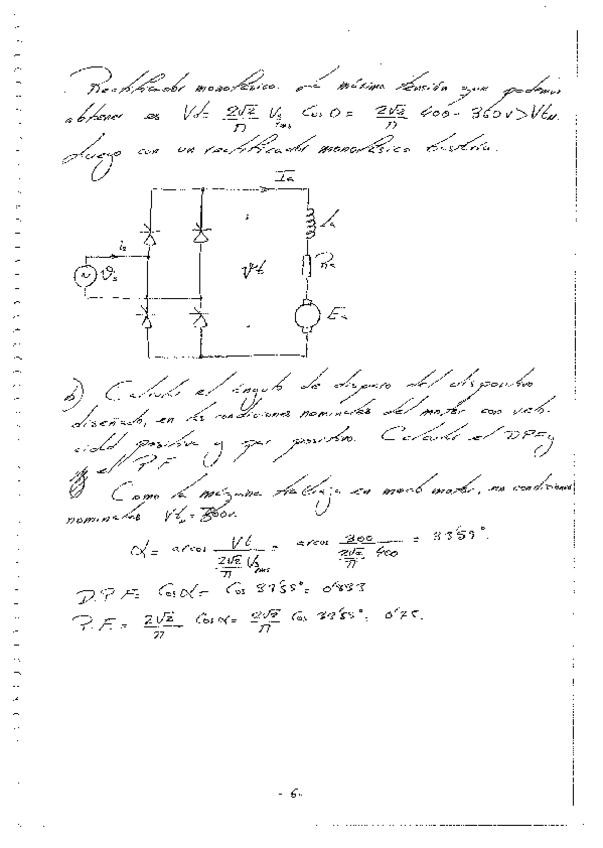 Rectificador monofásico. La máxima tensión que podemos
obtener es Vd= 2√2/π Vs rms Cos 0 = 2√2/π 400 = 360V > Vtn.
Luego con un rectificador monofásico bastaría.
Ia
La
is
Vs
Vt
Ra
Ea
b) Calcular el ángulo de disparo del dispositivo
diseñado, en las condiciones nominales del motor con velo-
cidad positiva y par positivo. Calcular el DPF y
el P.F
Como la máquina trabaja en modo motor, en condiciones
nominales Vt = 300v.
α = arcos Vt / (2√2/π Vs rms) = arcos 300 / (2√2/π 400) = 33'55°.
D.P.F= Cosα= Cos 33'55°= 0'833
P.F.= 2√2/π Cosα= 2√2/π Cos 33'55°= 0'75.
- 6-